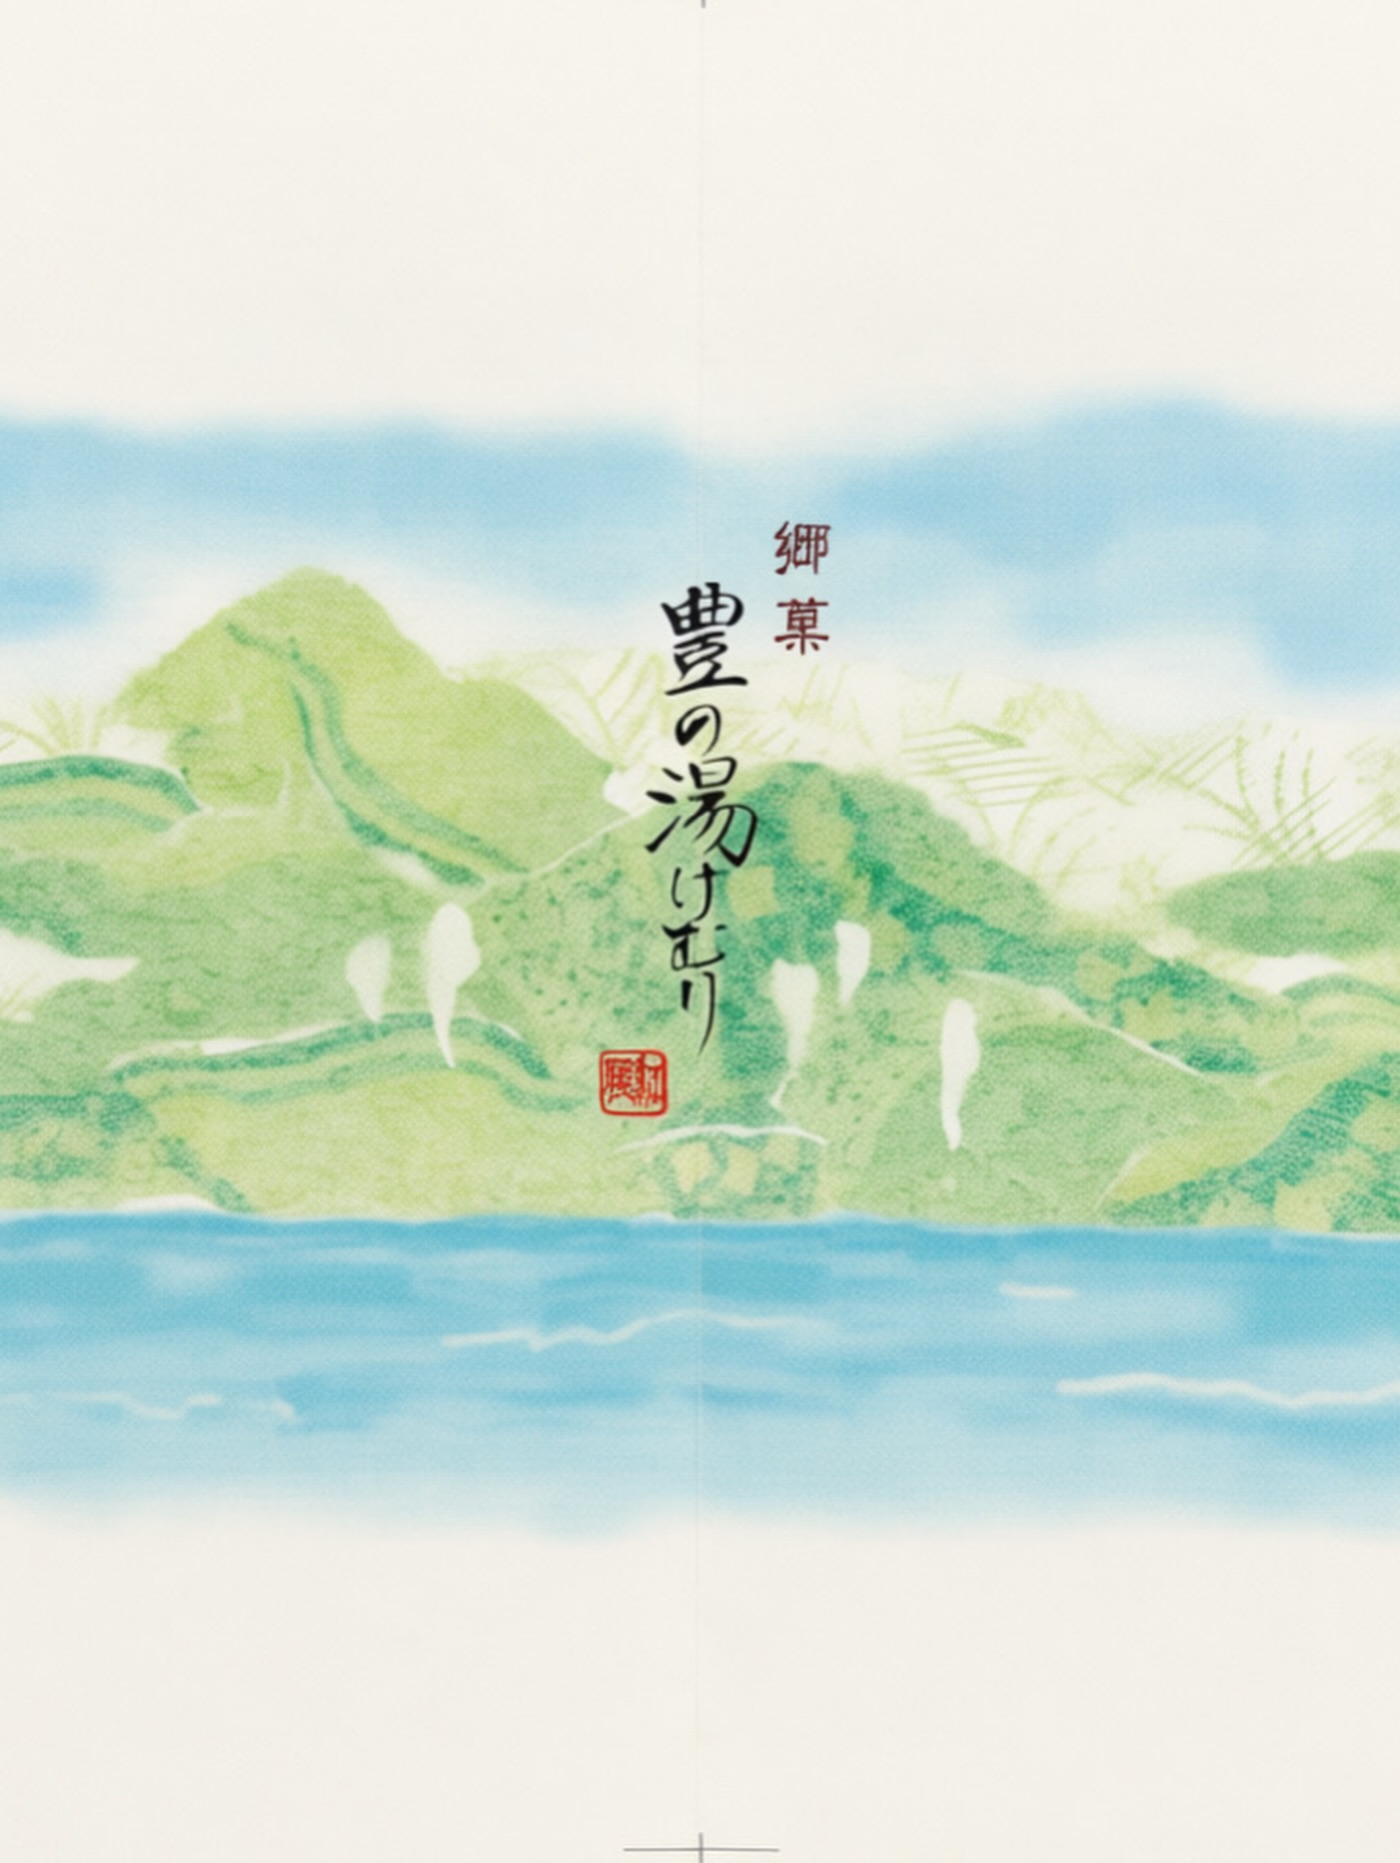 郷菓
豊の湯けむり